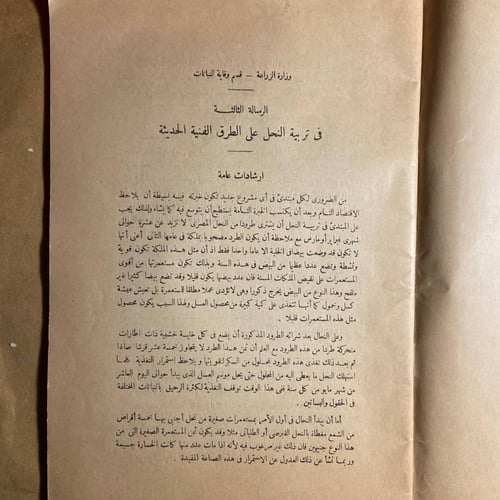 وزارة الزراعة – قسم وقاية النباتات
الرسالة الثالثة
فى تربية النحل على الطرق الفنية الحديثة
ارشادات عامة
من الضرورى لكل مبتدئ فى أى مشروع جديد تكون خبرته فيه بسيطة أن يلاحظ
الاقتصاد التام وبعد أن يكتسب الخبرة التامة استطيع أن يتوسع فيه كما يشاء ولذلك يجب
على المبتدئ فى تربية النحل أن يشترى طرودا من النحل المصرى لا تزيد عن عشرة حوالى
شهرى فبراير أو مارس مع ملاحظة أن يكون الطرد مصحوبا بملكة فى عامها الثانى أعنى أنها
لا تكون قد وضعت بيضا فى الخلية الا عاما واحدا فقط اذ أن مثل هذه الملكة تكون قوية
ونشطة وتضع عددا عظيما من البيض فى هذه السنة وبذلك تكون مستعمرتها من أقوى
المستعمرات على نقيض الملكات المسنة فان عدد بيضها يكون قليلا وقد تضع بيضا كثيرا غير
ملقح وهذا النوع من البيض يخرج ذكورا وهى لا تؤدى عملا مطلقا للمستعمرة بل تعيش عيشة
كسل وخمول كما أنها تتغذى على كمية كبيرة من محصول العسل ولهذا السبب يكون محصول
مثل هذه المستعمرات قليلا .
وعلى النحال بعد شرائه الطرود المذكورة أن يضع فى كل خلية خشبية ذات اطارات
متحركة طردا من هذه الطرود مع العلم أن ثمن هذا الطرد لا يتجاوز خمسة عشر قرشا صاغا
ثم بعد ذلك تغذى هذه الطرود بمحلول من السكر لتقويتها ويلاحظ استمرار التغذية كلما
استهلك النحل ما يعطى اليه من المحلول حتى يحل موسم العسل الذى يبدأ حوالى اليوم العاشر
من شهر مايو من كل سنة ففى هذا الوقت توقف التغذية لكثرة الرحيق بالنباتات المختلفة
فى الحقول والبساتين .
أما أن يبدأ النحال فى أول الأمر بمستعمرات صغيرة من نحل أجنبى بها خمسة أقراص
من الشمع مغطاة بالنحل القبرصى أو الطليانى مثلا وقد يكون ثمن المستعمرة الصغيرة التى من
هذا النوع جنيهين فان ذلك غير مرغوب فيه لأنه اذا مات عدد منها كانت الخسارة جسيمة
وربما نشأ عن ذلك العدول عن الاستمرار فى هذه الصناعة المفيدة .